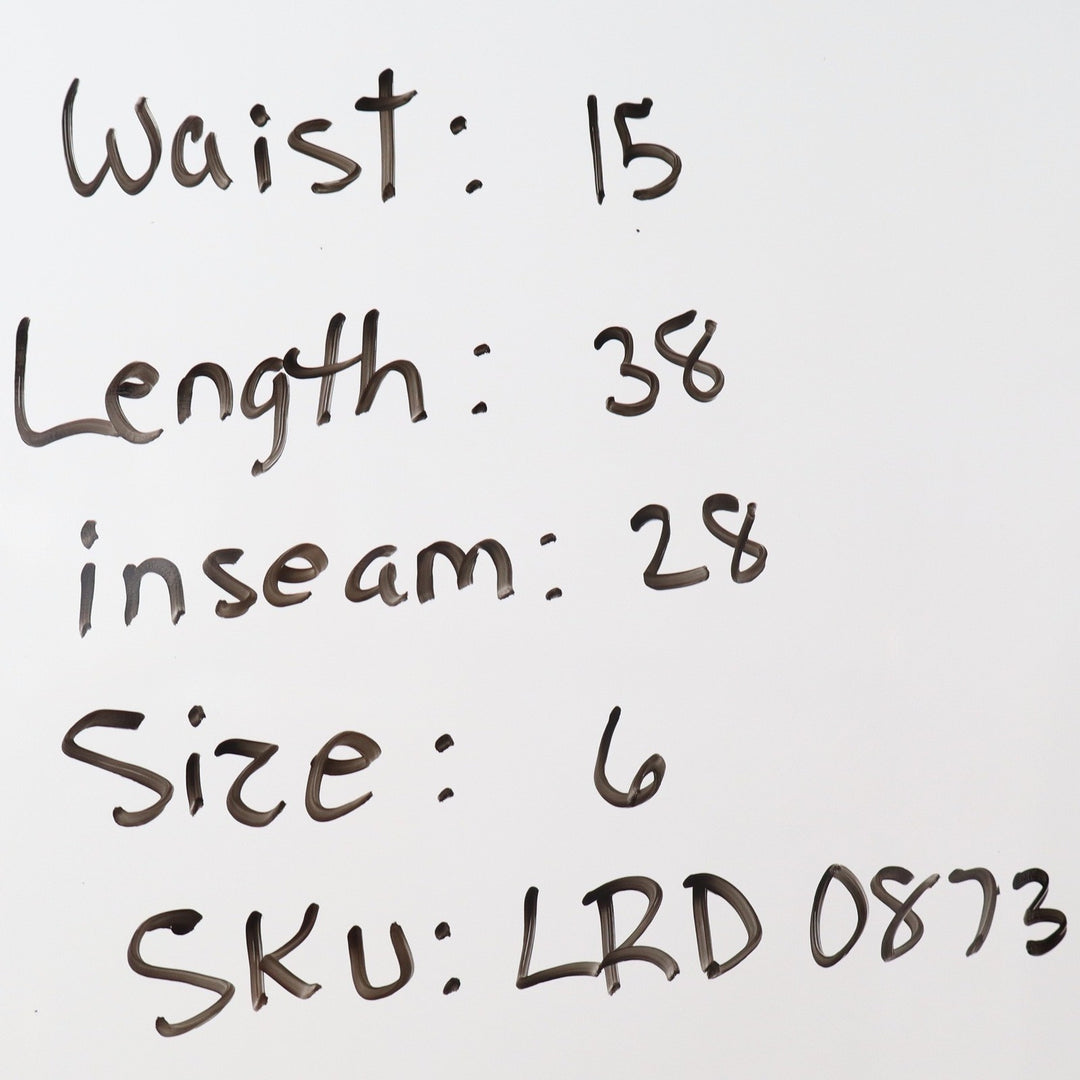 Waist: 15
Length: 38
inseam: 28
Size: 6
SKU: LRD 0873